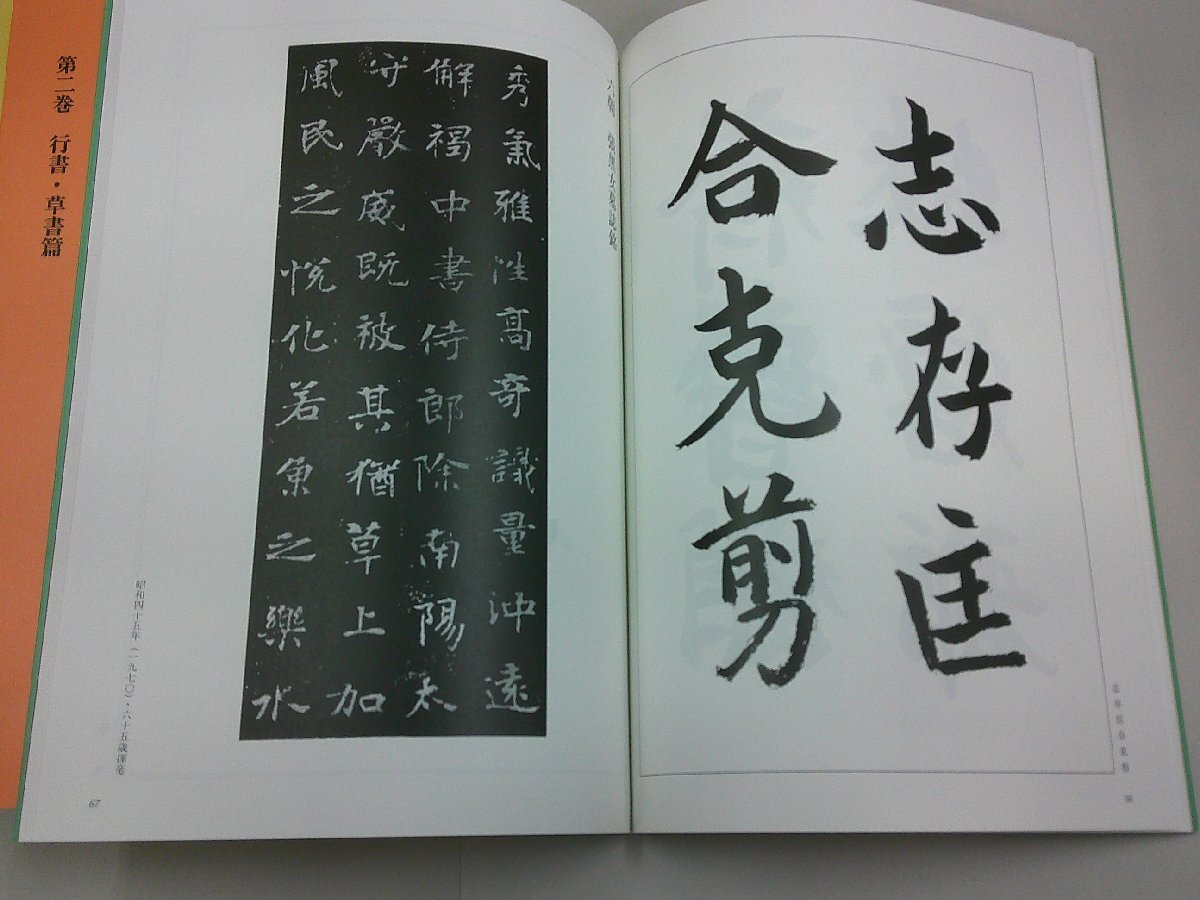 志存匡
合克剪
秀氣雅性高奇識量沖遠
解褐中書侍郎除南陽太
守嚴威既被其猶草上加
風民之悦化若魚之樂水
昭和四十五年(一九七〇)・六十五歳揮毫
67
第二巻 行書・草書篇